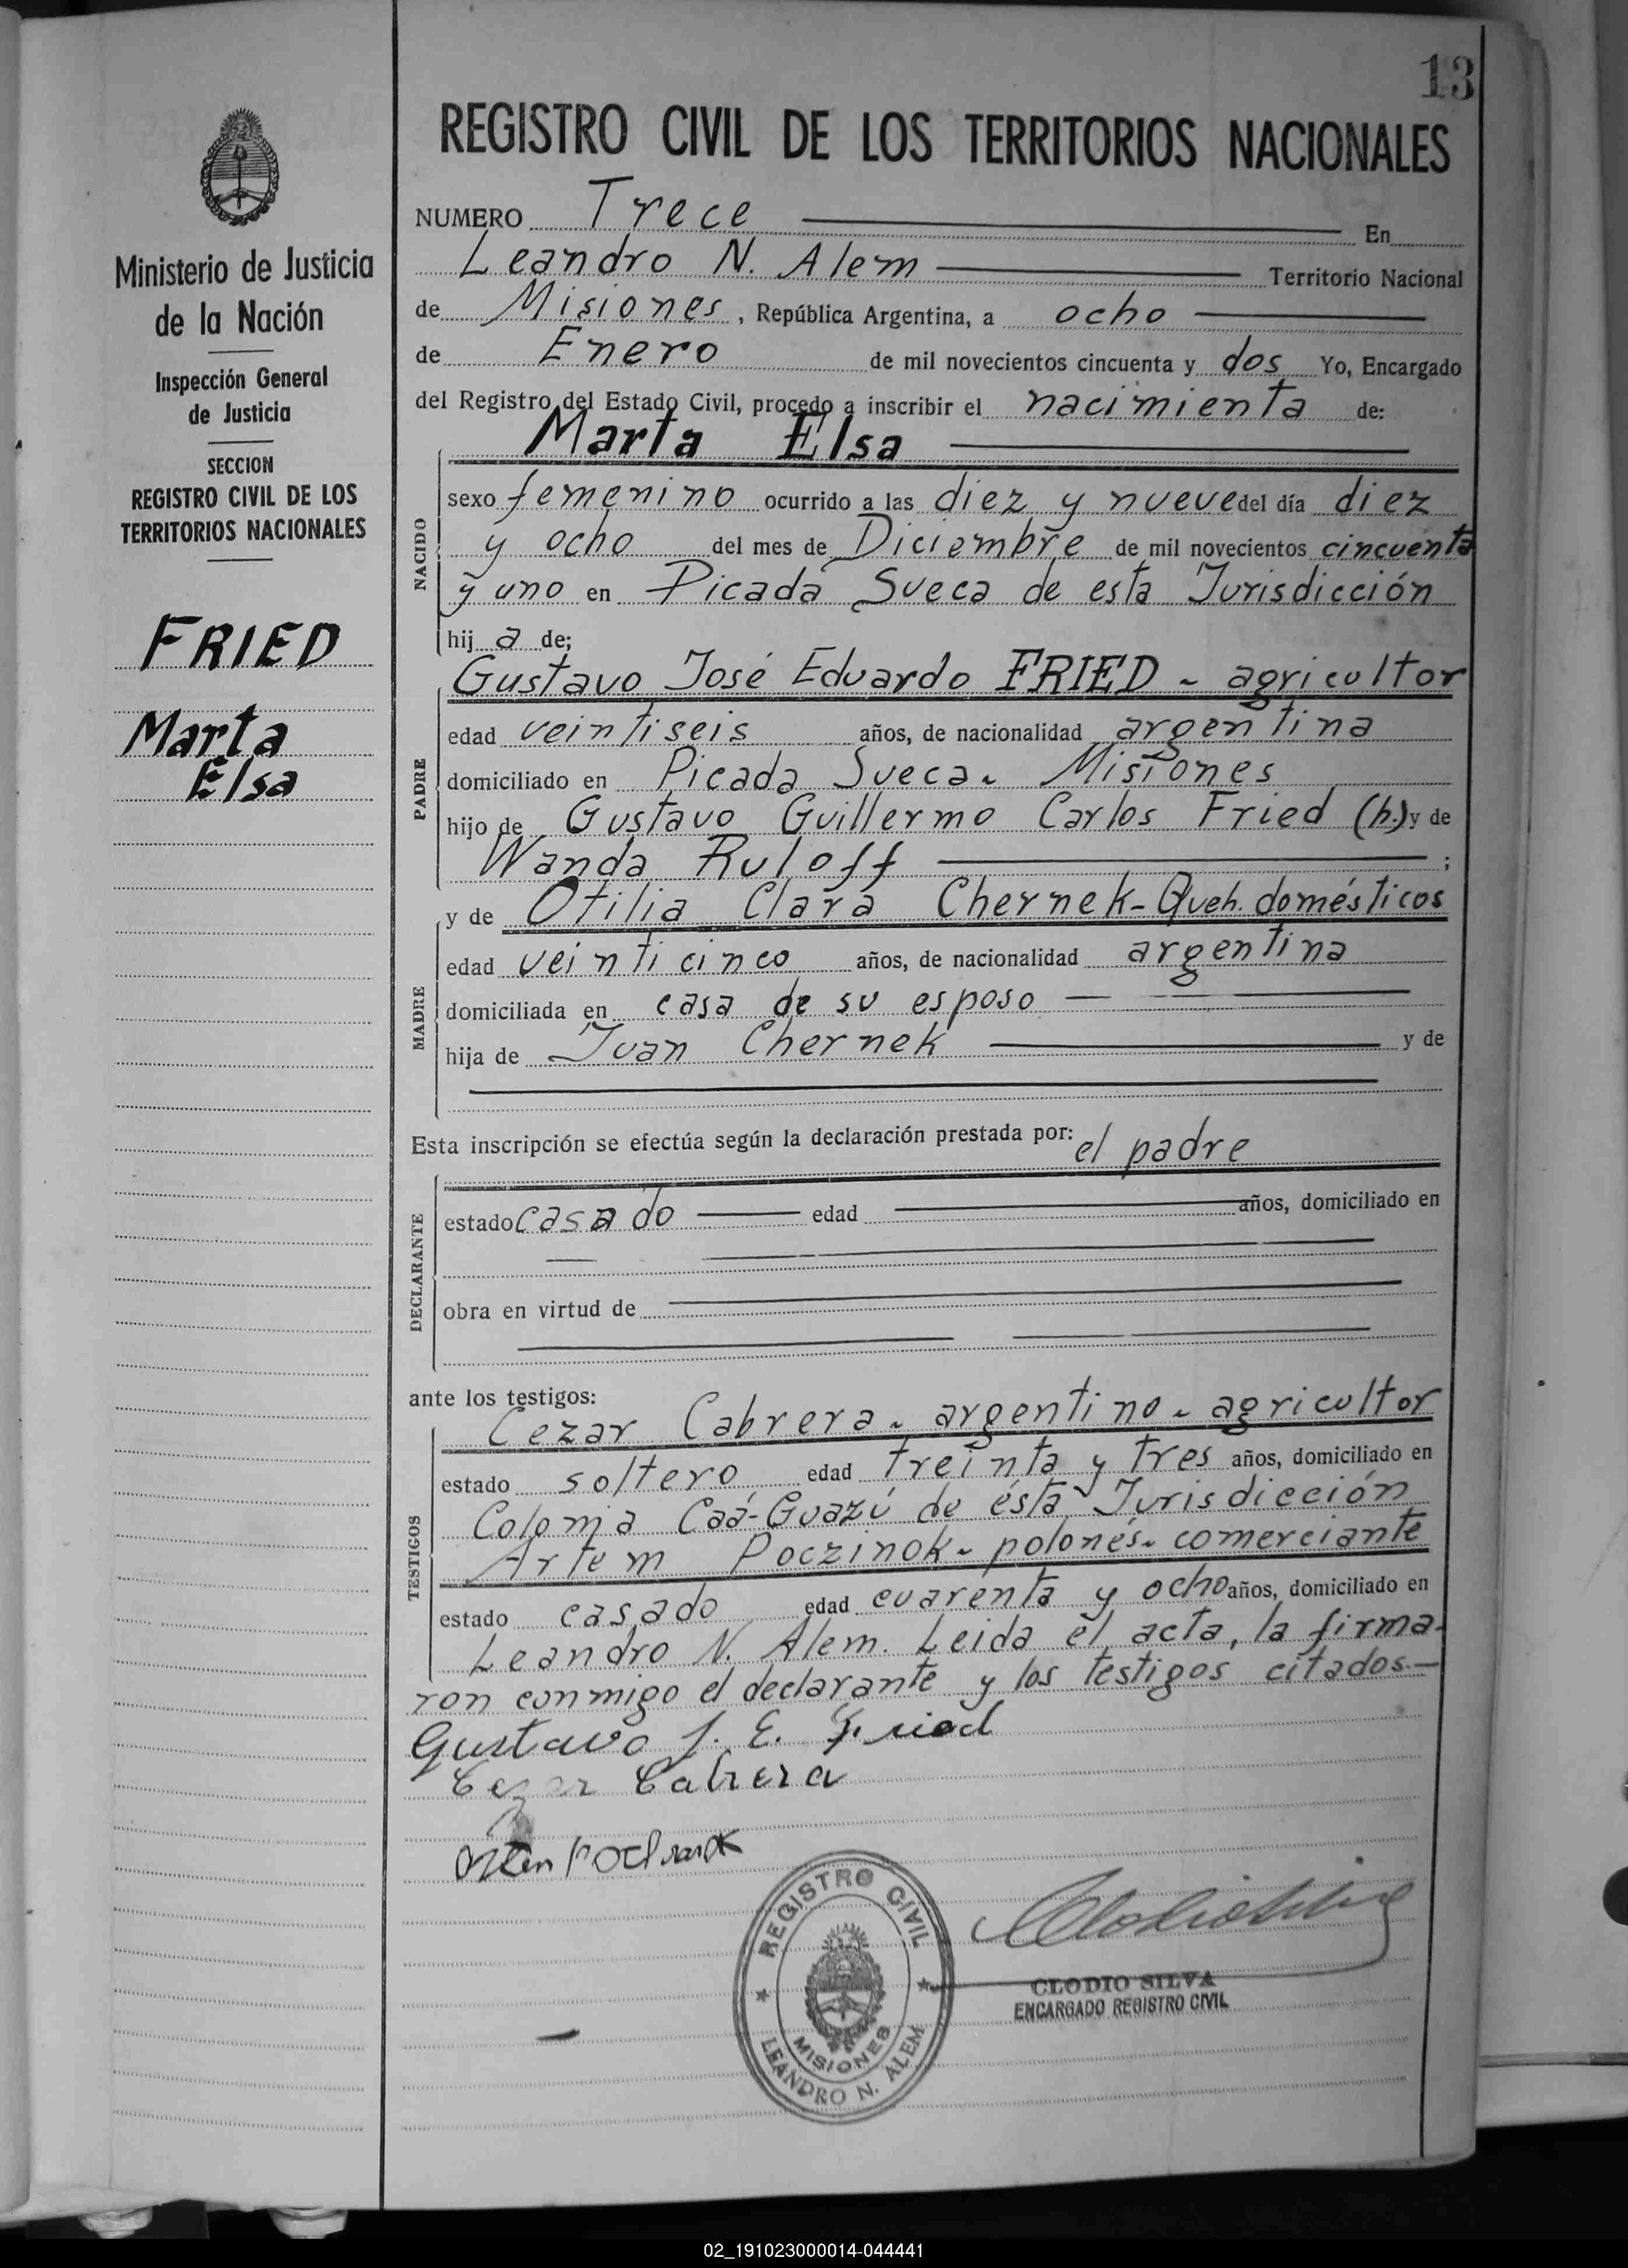 13
REGISTRO CIVIL DE LOS TERRITORIOS NACIONALES
Ministerio de Justicia
de la Nación
Inspección General
de Justicia
SECCION
REGISTRO CIVIL DE LOS
TERRITORIOS NACIONALES
FRIED
Marta
Elsa
NUMERO Trece En
Leandro N. Alem Territorio Nacional
de Misiones, República Argentina, a ocho
de Enero de mil novecientos cincuenta y dos Yo, Encargado
del Registro del Estado Civil, procedo a inscribir el nacimienta de:
Marta Elsa
NACIDO
sexo femenino ocurrido a las diez y nueve del día diez
y ocho del mes de Diciembre de mil novecientos cincuenta
y uno en Picada Sueca de esta Jurisdicción
hij a de;
PADRE
Gustavo José Eduardo FRIED - agricultor
edad veintiseis años, de nacionalidad argentina
domiciliado en Picada Sueca - Misiones
hijo de Gustavo Guillermo Carlos Fried (h.) y de
Wanda Ruloff ;
MADRE
y de Otilia Clara Chernek - Queh. domésticos
edad veinticinco años, de nacionalidad argentina
domiciliada en casa de su esposo
hija de Juan Chernek y de
Esta inscripción se efectúa según la declaración prestada por: el padre
DECLARANTE
estado casado edad años, domiciliado en
obra en virtud de
ante los testigos:
TESTIGOS
Cezar Cabrera - argentino - agricultor
estado soltero edad treinta y tres años, domiciliado en
Colonia Caá-Guazú de ésta Jurisdicción
Artem Poczinok - polonés - comerciante
estado casado edad cuarenta y ocho años, domiciliado en
Leandro N. Alem. Leida el acta, la firma-
ron conmigo el declarante y los testigos citados.-
Gustavo J. E. Fried
Cezar Cabrera
REGISTRO CIVIL
MISIONES
LEANDRO N. ALEM
CLODIO SILVA
ENCARGADO REGISTRO CIVIL
02_191023000014-044441